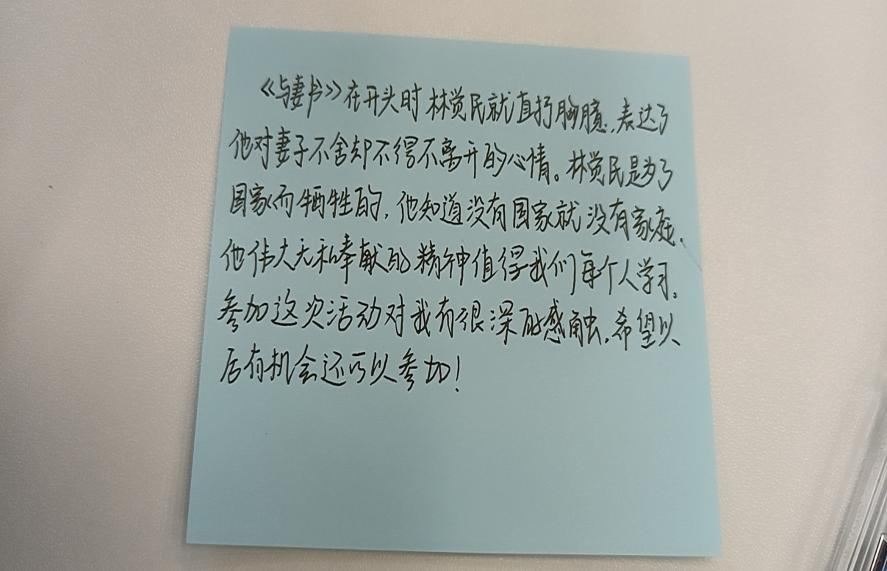 《与妻书》在开头时林觉民就直抒胸臆,表达了
他对妻子不舍却不得不离开的心情。林觉民是为了
国家而牺牲的,他知道没有国家就没有家庭,
他伟大无私奉献的精神值得我们每个人学习。
参加这次活动对我有很深的感触,希望以
后有机会还可以参加!